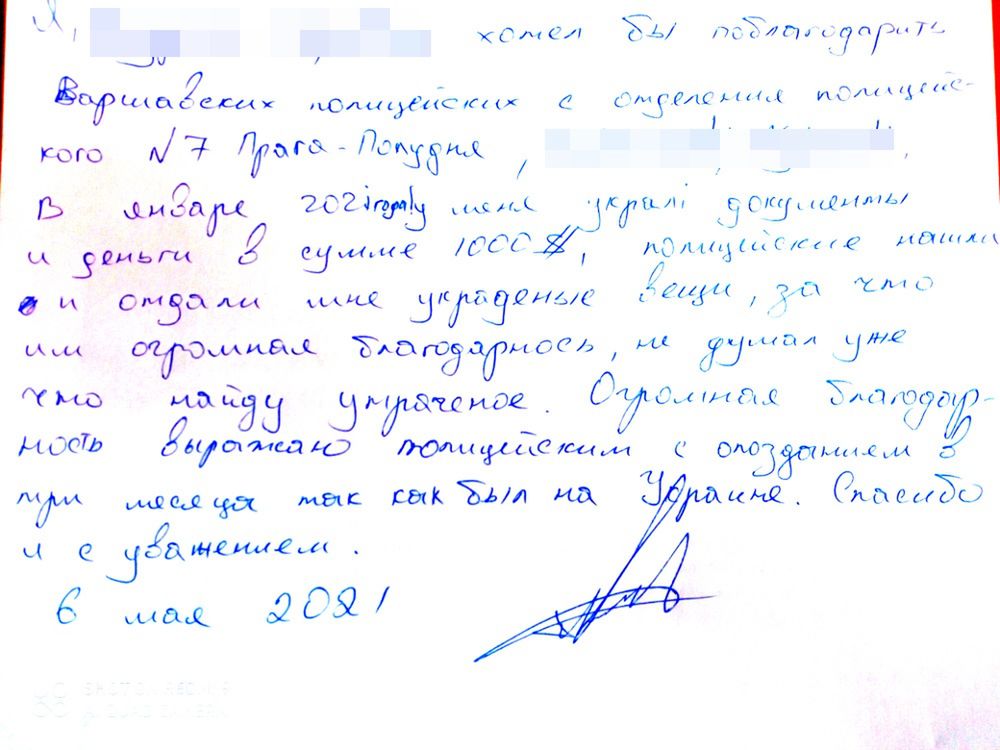 Я, хотел бы поблагодарить
Варшавских полицейских с отделения полицейс-
кого N7 Прага-Полудня ,
В январе 2021 году меня украли документы
и деньги в сумме 1000 $, полицейские нашли
и отдали мне украденые вещи, за что
им огромная благодарнось, не думал уже
что найду утраченое. Огромная благодар-
ность выражаю полицейским с опозданием в
три месяца так как был на Украине. Спасибо
и с уважением.
6 мая 2021
SHOT ON REDMI 9
AI QUAD CAMERA